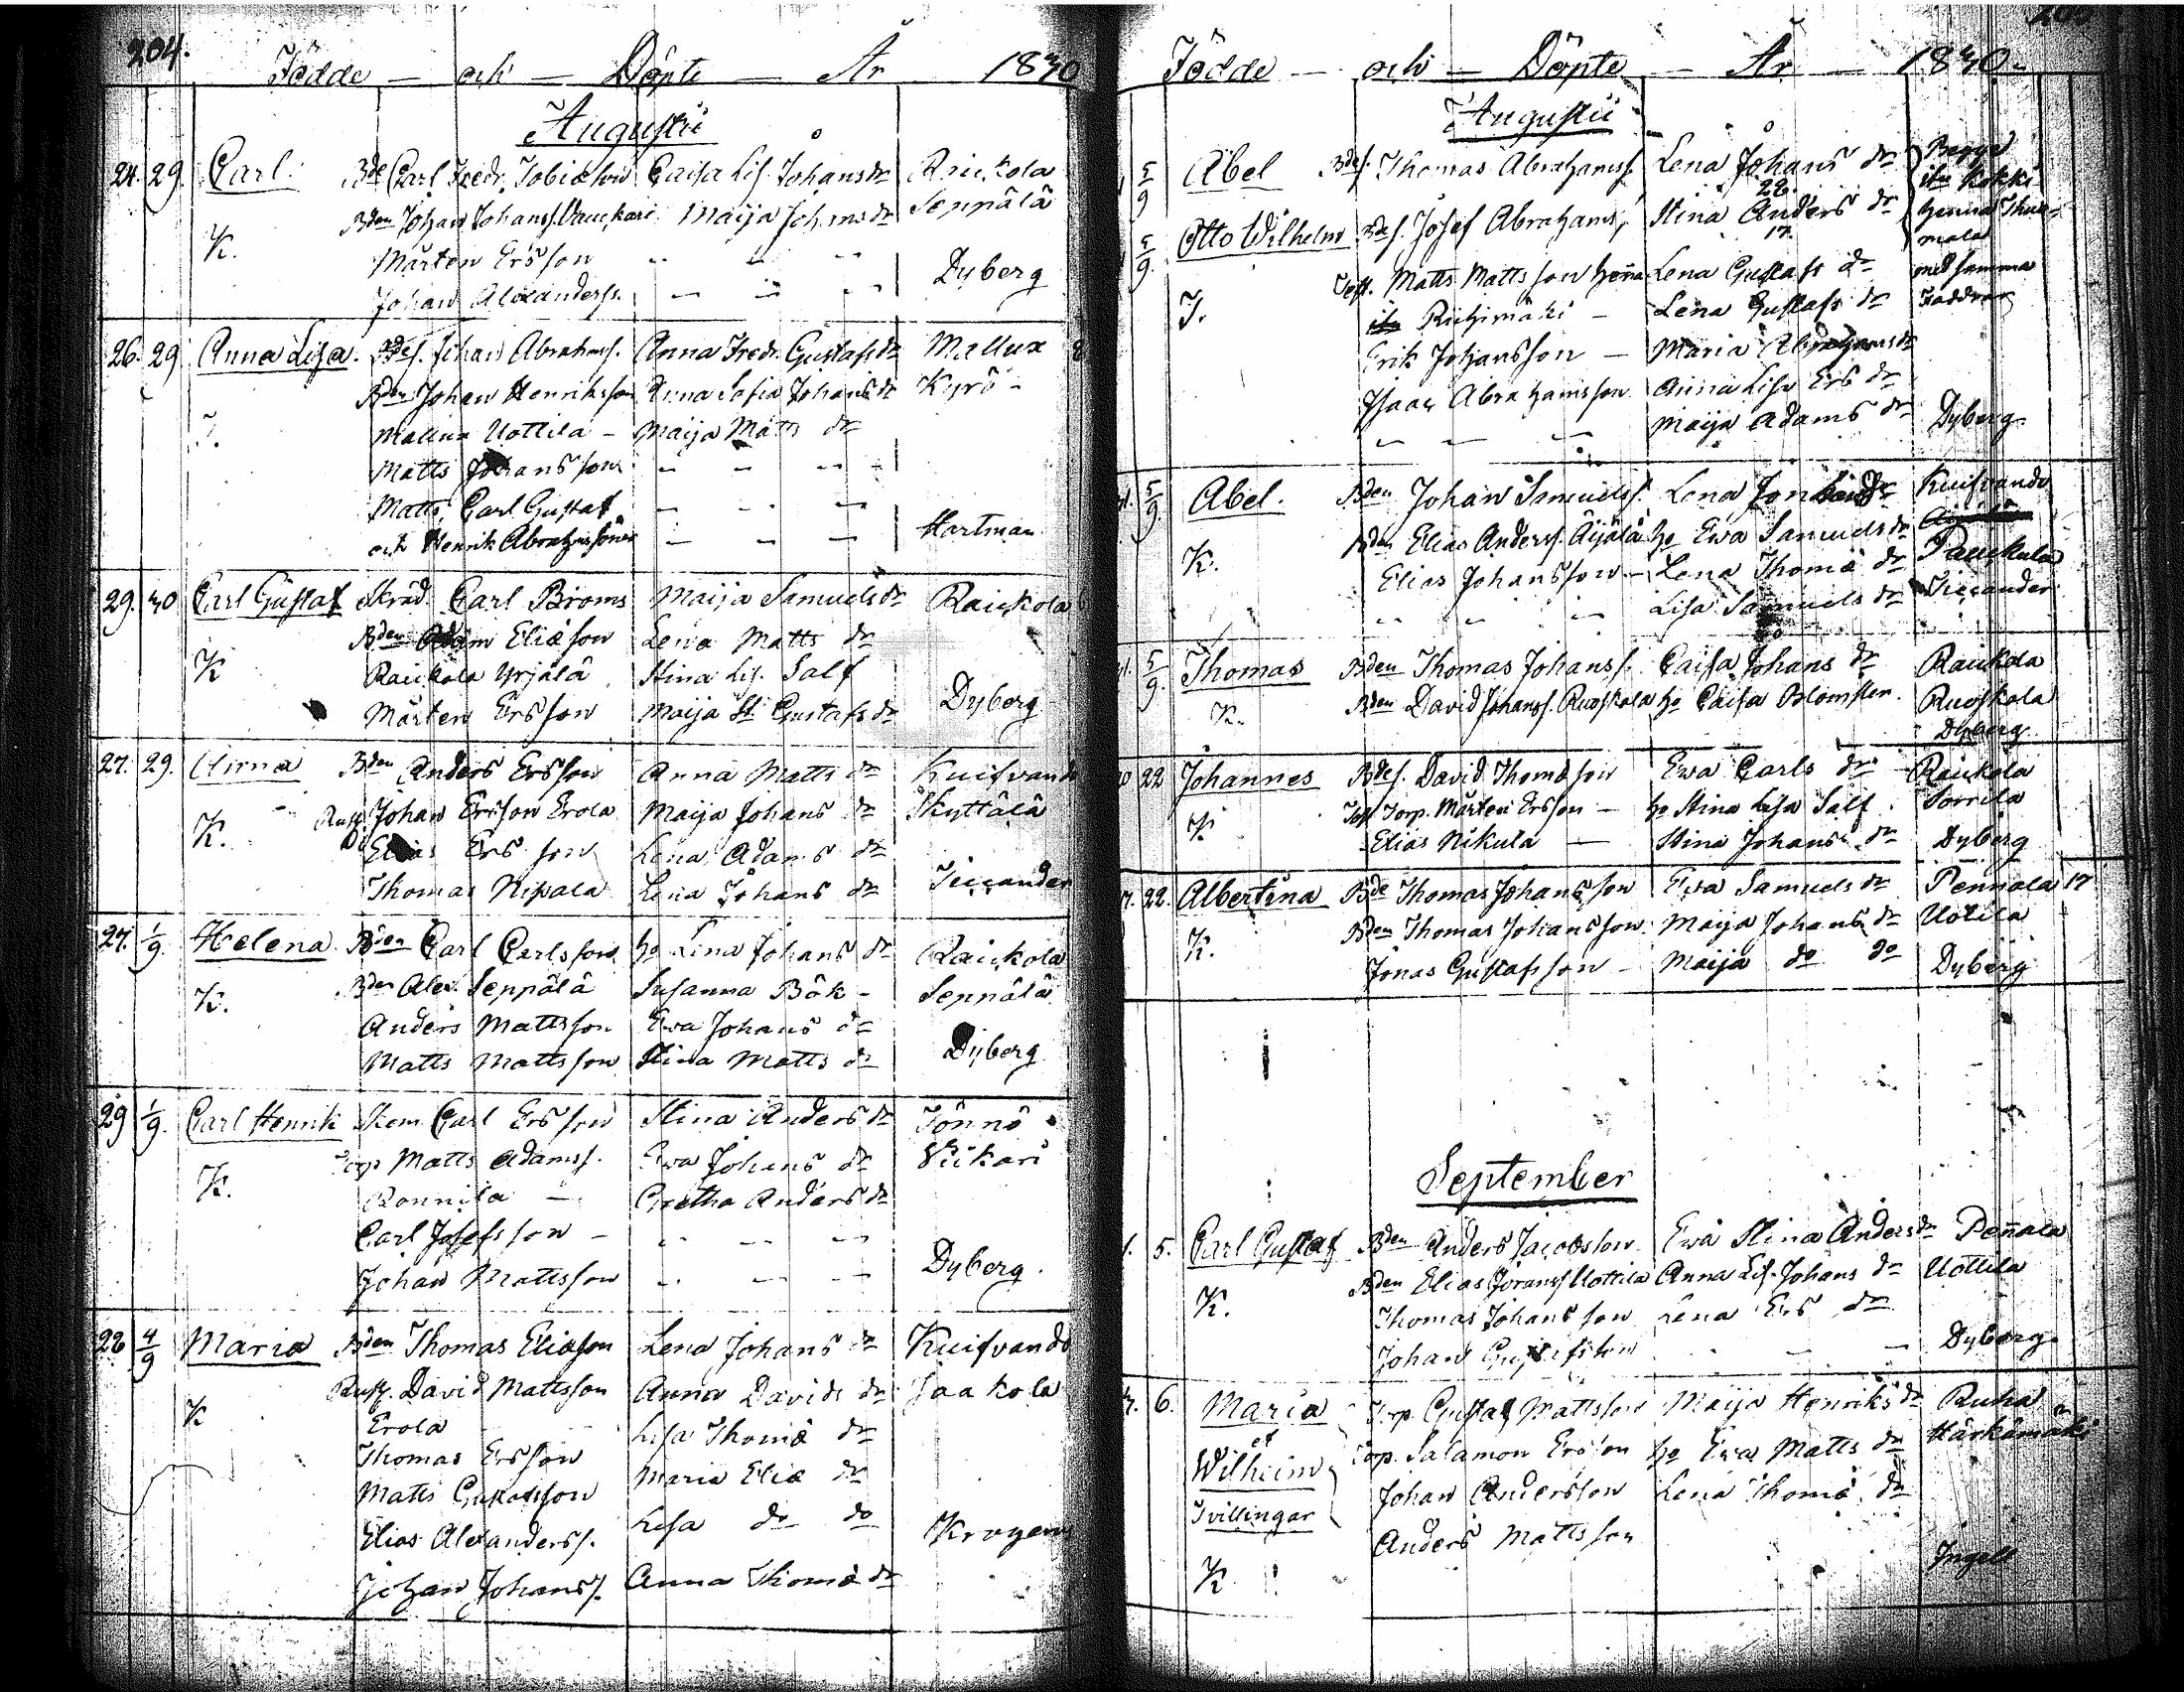 204.
Födde — och — Döpte — År 1830
Augusti
24. 29. Carl. Bde Carl Fredr. Tobiæson Caisa Lis. Johans dr Raickola
Bden Johan Johanss. Vauckari Maija Johans dr Seppälä
K. Mårten Ersson
Johan Alexanderss. Dyberg
26. 29 Anna Lisa. Bdes. Johan Abrahamss. Anna Fredr. Gustafs dr Mallux
Bden Johan Henriksson Anna Sofia Johans dr Kyrö
Mallux Uottila — Maija Matts dr
Matts Johansson
Matts, Carl Gustaf
och Henrik Abrahamsöner Hartman
29. 30 Carl Gustaf Skräd. Carl Broms Maija Samuels dr Raickola
Bden Adam Eliæson Lena Matts dr
K Raickola Yrjälä Stina Lis. Salf
Mårten Ersson Maija St. Gustafs dr Dyberg
27. 29. Anna Bden Anders Ersson Anna Matts dr Kuifvands
Rusth. Johan Ersson Erola Maija Johans dr Skyttälä
K. Elias Ersson Lena Adams dr
Thomas Nipala Lena Johans dr Ticcander
27. 1/9. Helena Bden Carl Carlsson ho Lina Johans dr Raickola
Bden Alex. Seppälä Susanna Bök — Seppälä
K. Anders Mattsson Ewa Johans dr
Matts Mattsson Stina Matts dr Dyberg
29 1/9. Carl Henrik Skom. Carl Ersson Stina Anders dr Tönnö
Torp Matts Adamss. Ewa Johans dr Viikari
K. Ronnila — Gretha Anders dr
Carl Josefsson —
Johan Mattsson Dyberg.
28 4/9 Maria Bden Thomas Eliæson Lena Johans dr Kuifvands
Rusth. David Mattsson Anna Davids dr Jaakola
K Erola Lisa Thomæ dr
Thomas Ersson Maria Eliæ dr
Matts Gustafsson
Elias Alexanderss. Lisa do do Krogerus
Johan Johanss. Anna Thomæ dr
Födde — och — Döpte — År — 1830
Augusti
5/9 Abel Bdes. Thomas Abrahamss. Lena Johans dr
28.
5/9. Otto Wilhelm Bdes. Josef Abrahams. Stina Anders dr
17.
Test. Matts Mattsson Lena Gustafs dr med samma
T. Riihimäki — Lena Gustafs dr Faddrar
Erik Johansson — Maria Abrahams dr
Isaac Abrahamsson Anna Lisa Ers dr
Maija Adams dr Dyberg
31. 5/9. Abel. Bden Johan Samuelss. Lena Kuifvands
Bden Elias Anderss. Äijälä ho Ewa Samuels dr
K. Elias Johansson — Lena Thomæ dr Pauckula
Lisa Samuels dr Ticcander
31. 5/9. Thomas Bden Thomas Johanss. Caisa Johans dr Raickola
K. Bden David Johanss. Ruoskola ho Caisa Blomster. Ruoskola
Dyberg
22 Johannes Bdes. David Thomæson Ewa Carls dr Raickola
Test Torp. Mårten Ersson — ho Stina Lisa Salf. Sorrila
K Elias Nikula — Stina Johans dr Dyberg
22. Albertina Bde Thomas Johansson Ewa Samuels dr Pennala 17
Bden Thomas Johansson Maija Johans dr Uotila
K. Jonas Gustafsson — Maija do do Dyberg
September
5. Carl Gustaf Bden Anders Jacobsson Ewa Stina Anders dr Pennala
Bden Elias Göranss. Uottila Anna Lis. Johans dr Uottila
K. Thomas Johansson Lena Ers dr
Johan Gustafsson Dyberg
6. Maria Torp. Gustaf Mattsson Maija Henriks dr Ruha
et Torp. Salamon Ersson ho Ewa Matts dr Härkämäki
Wilhelm Johan Andersson Lena Thomæ dr
Tvillingar Anders Mattsson
K Ingell